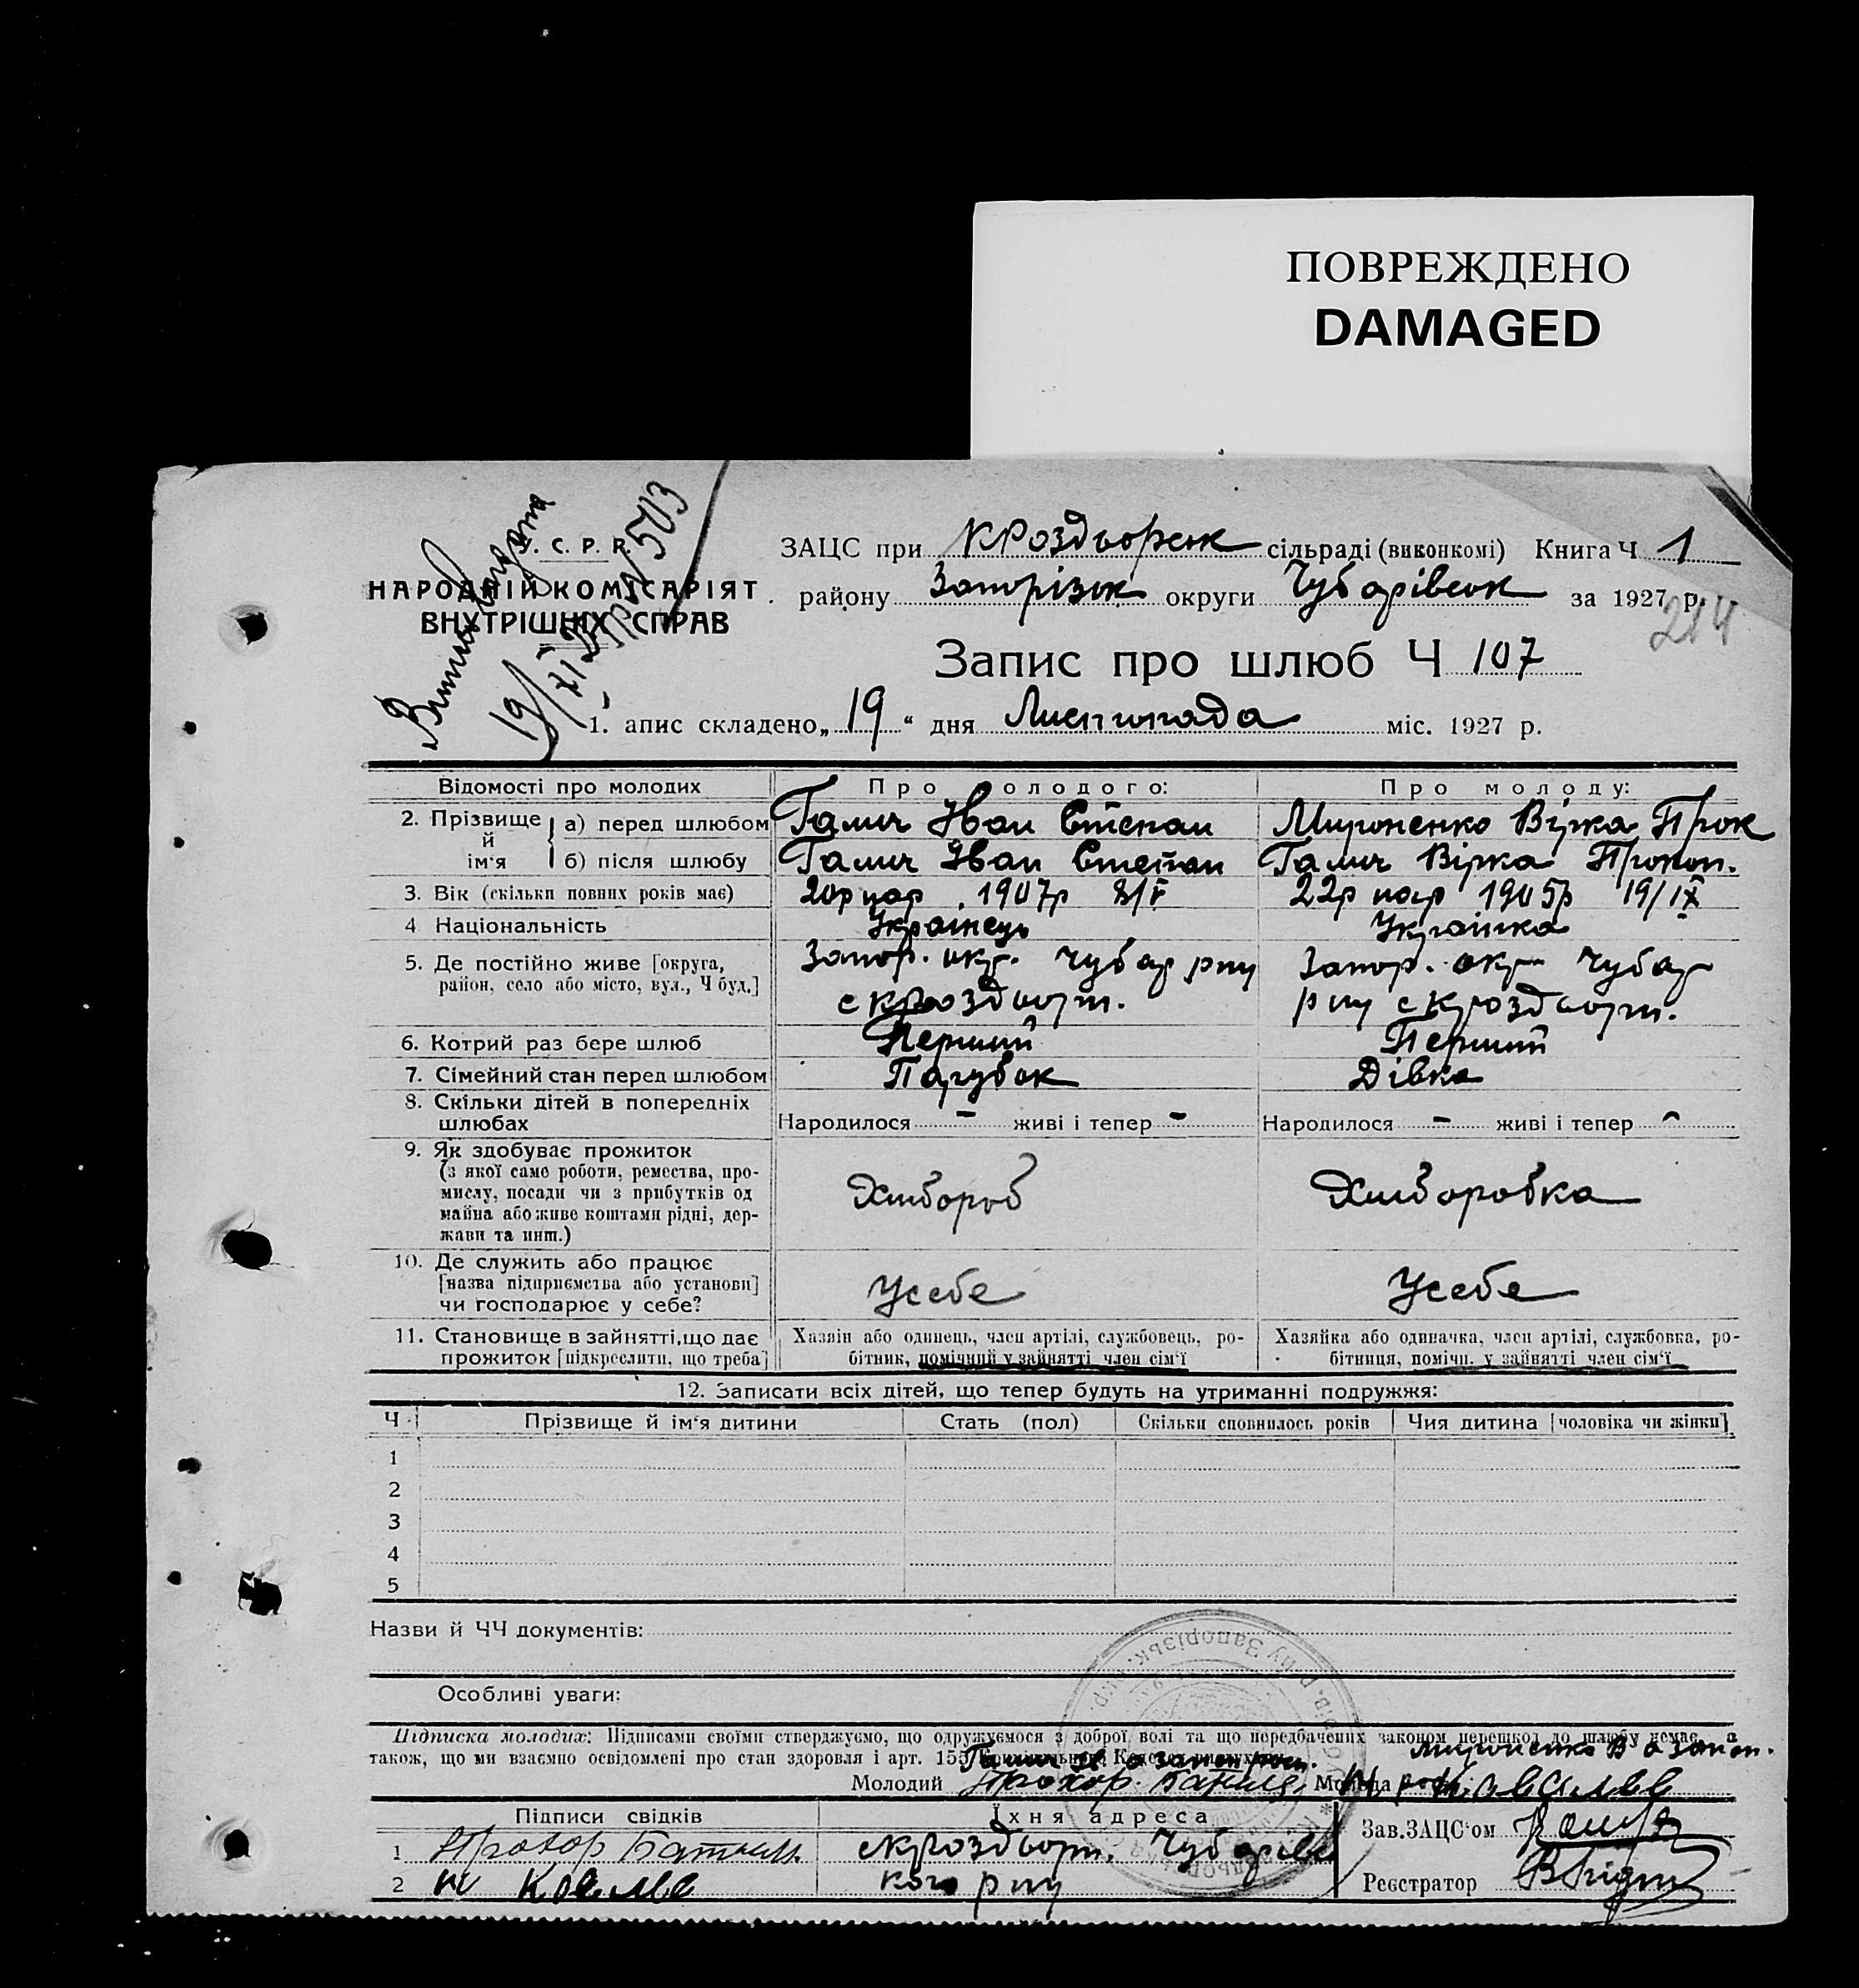 ПОВРЕЖДЕНО
DAMAGED
У. С. Р. Р.
НАРОДНІЙ КОМІСАРІЯТ
ВНУТРІШНІХ СПРАВ
503
ЗАЦС при Кроздьорськ сільраді (виконкомі) Книга Ч 1
району Запорізьк округи Чубарівськ за 1927 р.
214
Запис про шлюб Ч 107
1. апис складено „19“ дня Листопада міс. 1927 р.
Відомості про молодих Про олодого: Про молоду:
2. Прізвище й ім‘я а) перед шлюбом Галич Іван Степан Мироненко Вірка Прок
б) після шлюбу Галич Іван Степан Галич Вірка Прокоп.
3. Вік (скільки повних років має) 20р нар. 1907р 8/V 22р нар 1905р 19/IX
4 Національність Українець Українка
5. Де постійно живе [округа, Запор. окр. Чубар рну Запор. окр Чубар
район, село або місто, вул., Ч буд.] с кроздьорт. рну с кроздьорт.
6. Котрий раз бере шлюб Перший Перший
7. Сімейний стан перед шлюбом Парубок Дівка
8. Скільки дітей в попередніх
шлюбах Народилося - живі і тепер - Народилося - живі і тепер -
9. Як здобуває прожиток
(з якої саме роботи, ремества, про-
мислу, посади чи з прибутків од Хлібороб Хлiборобка
майна або живе коштами рідні, дер-
жави та инш.)
10. Де служить або працює
[назва підприємства або установи] Усебе Усебе
чи господарює у себе?
11. Становище в зайнятті, що дає Хазяін або одинець, член артілі, службовець, ро- Хазяйка або одиначка, член артілі, службовка, ро-
прожиток [підкреслити, що треба] бітник, помічний у зайнятті член сім‘ї бітниця, помічн. у зайнятті член сім‘ї
12. Записати всіх дітей, що тепер будуть на утриманні подружжя:
Ч Прізвище й ім‘я дитини Стать (пол) Скільки сповнилось років Чия дитина [чоловіка чи жінки]
1
2
3
4
5
Назви й ЧЧ документів:
Особливі уваги:
Підписка молодих: Підписами своїми стверджуємо, що одружуємося з доброї волі та що передбачених законом перешкод до шлюбу немає, а
також, що ми взаємно освідомлені про стан здоровля і арт. 155 Кодексу
Галич Мироненко В
Молодий Прохор. Молода
Підписи свідків Їхня адреса Зав.ЗАЦС‘ом
1 Прохор с кроздьорт. Чубарівс
2 кого рну Реєстратор